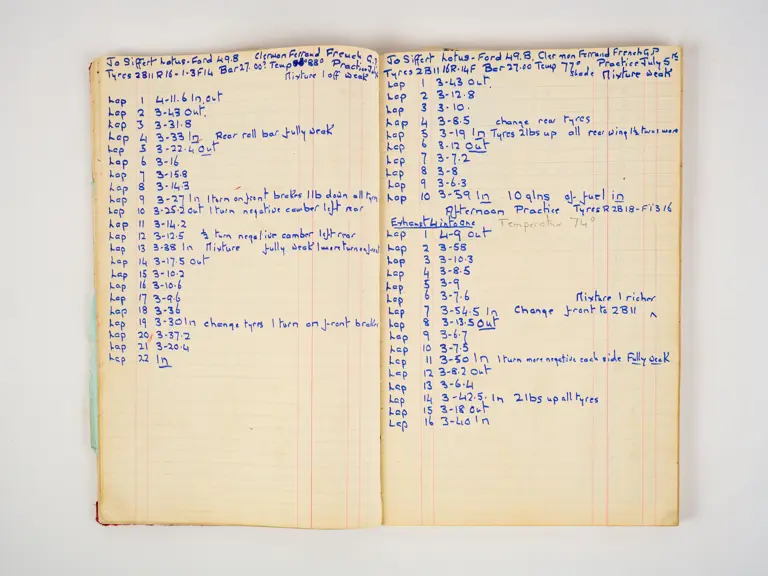 Jo Siffert Lotus-Ford 49.B Clermon Ferrand French G.P
Tyres 2B11 R16-1.3F14 Bar 27.00? Temp 88° Practice
Mixture 1 off weak
Lap 1 4-11.6 In, out
Lap 2 3-43 Out.
Lap 3 3-31.8
Lap 4 3-33 In. Rear roll bar fully weak
Lap 5 3-22.4 Out
Lap 6 3-16
Lap 7 3-15.8
Lap 8 3-14.3
Lap 9 3-27 In 1 turn on front brakes 1lb down all tyres
Lap 10 3-25.2 out 1 turn negative camber left rear
Lap 11 3-14.2
Lap 12 3-12.5 ½ turn negative camber left rear
Lap 13 3-38 In Mixture fully weak 1 more turn on front
Lap 14 3-17.5 out
Lap 15 3-10.2
Lap 16 3-10.6
Lap 17 3-9.6
Lap 18 3-36
Lap 19 3-30 In change tyres 1 turn on front brakes
Lap 20 3-37.2
Lap 21 3-20.4
Lap 22 In
Jo Siffert Lotus-Ford 49.B, Clermon Ferrand French G.P
Tyres 2B11 16R.14F Bar 27.00 Temp 77° Practice July 5th
shade Mixture weak
Lap 1 3-43 Out.
Lap 2 3-12.8
Lap 3 3-10.
Lap 4 3-8.5 change rear tyres
Lap 5 3-19 In Tyres 2lbs up all rear wing 1½ turns more
Lap 6 3-12 Out
Lap 7 3-7.2
Lap 8 3-8
Lap 9 3-6.3
Lap 10 3-59 In 10 glns of fuel in
Afternoon Practice Tyres R2B18-F1316
Exhaust 4 into one Temperature 74°
Lap 1 4-9 Out
Lap 2 3-58
Lap 3 3-10.3
Lap 4 3-8.5
Lap 5 3-9
Lap 6 3-7.6 Mixture 1 richer
Lap 7 3-54.5 In Change front to 2B11
Lap 8 3-13.5 Out
Lap 9 3-6.7
Lap 10 3-7.5
Lap 11 3-50 In 1 turn more negative each side Fully Weak
Lap 12 3-8.2 Out
Lap 13 3-6.4
Lap 14 3-42.5. In 2lbs up all tyres
Lap 15 3-18 Out
Lap 16 3-40 In